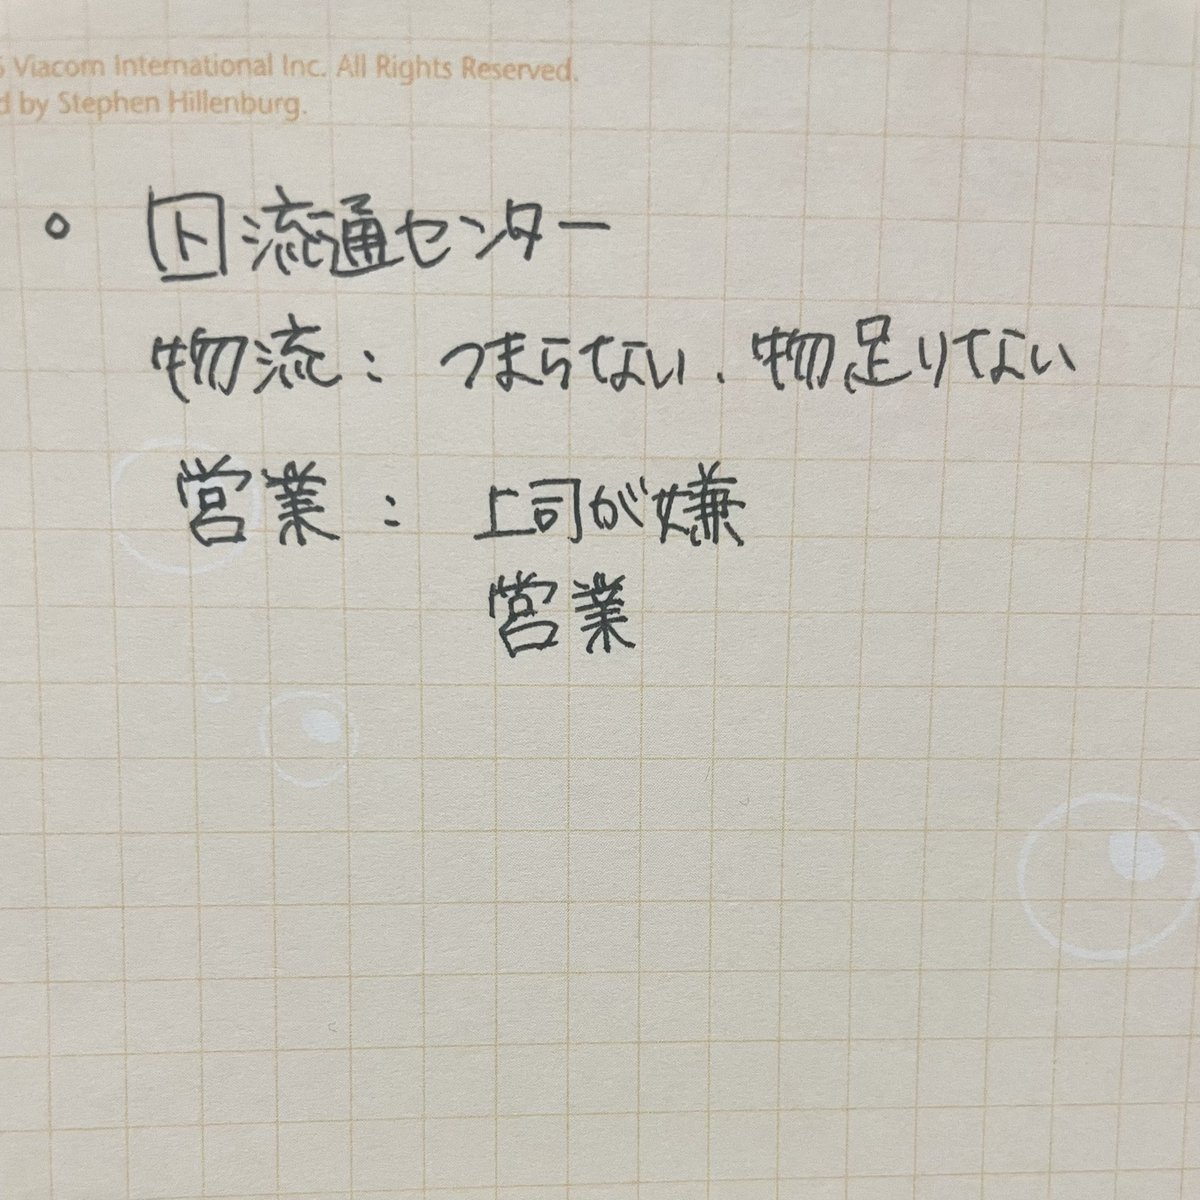 5 Viacom International Inc. All Rights Reserved.
d by Stephen Hillenburg.
。 囙流通センター
物流: つまらない、物足りない
営業: 上司が嫌
営業